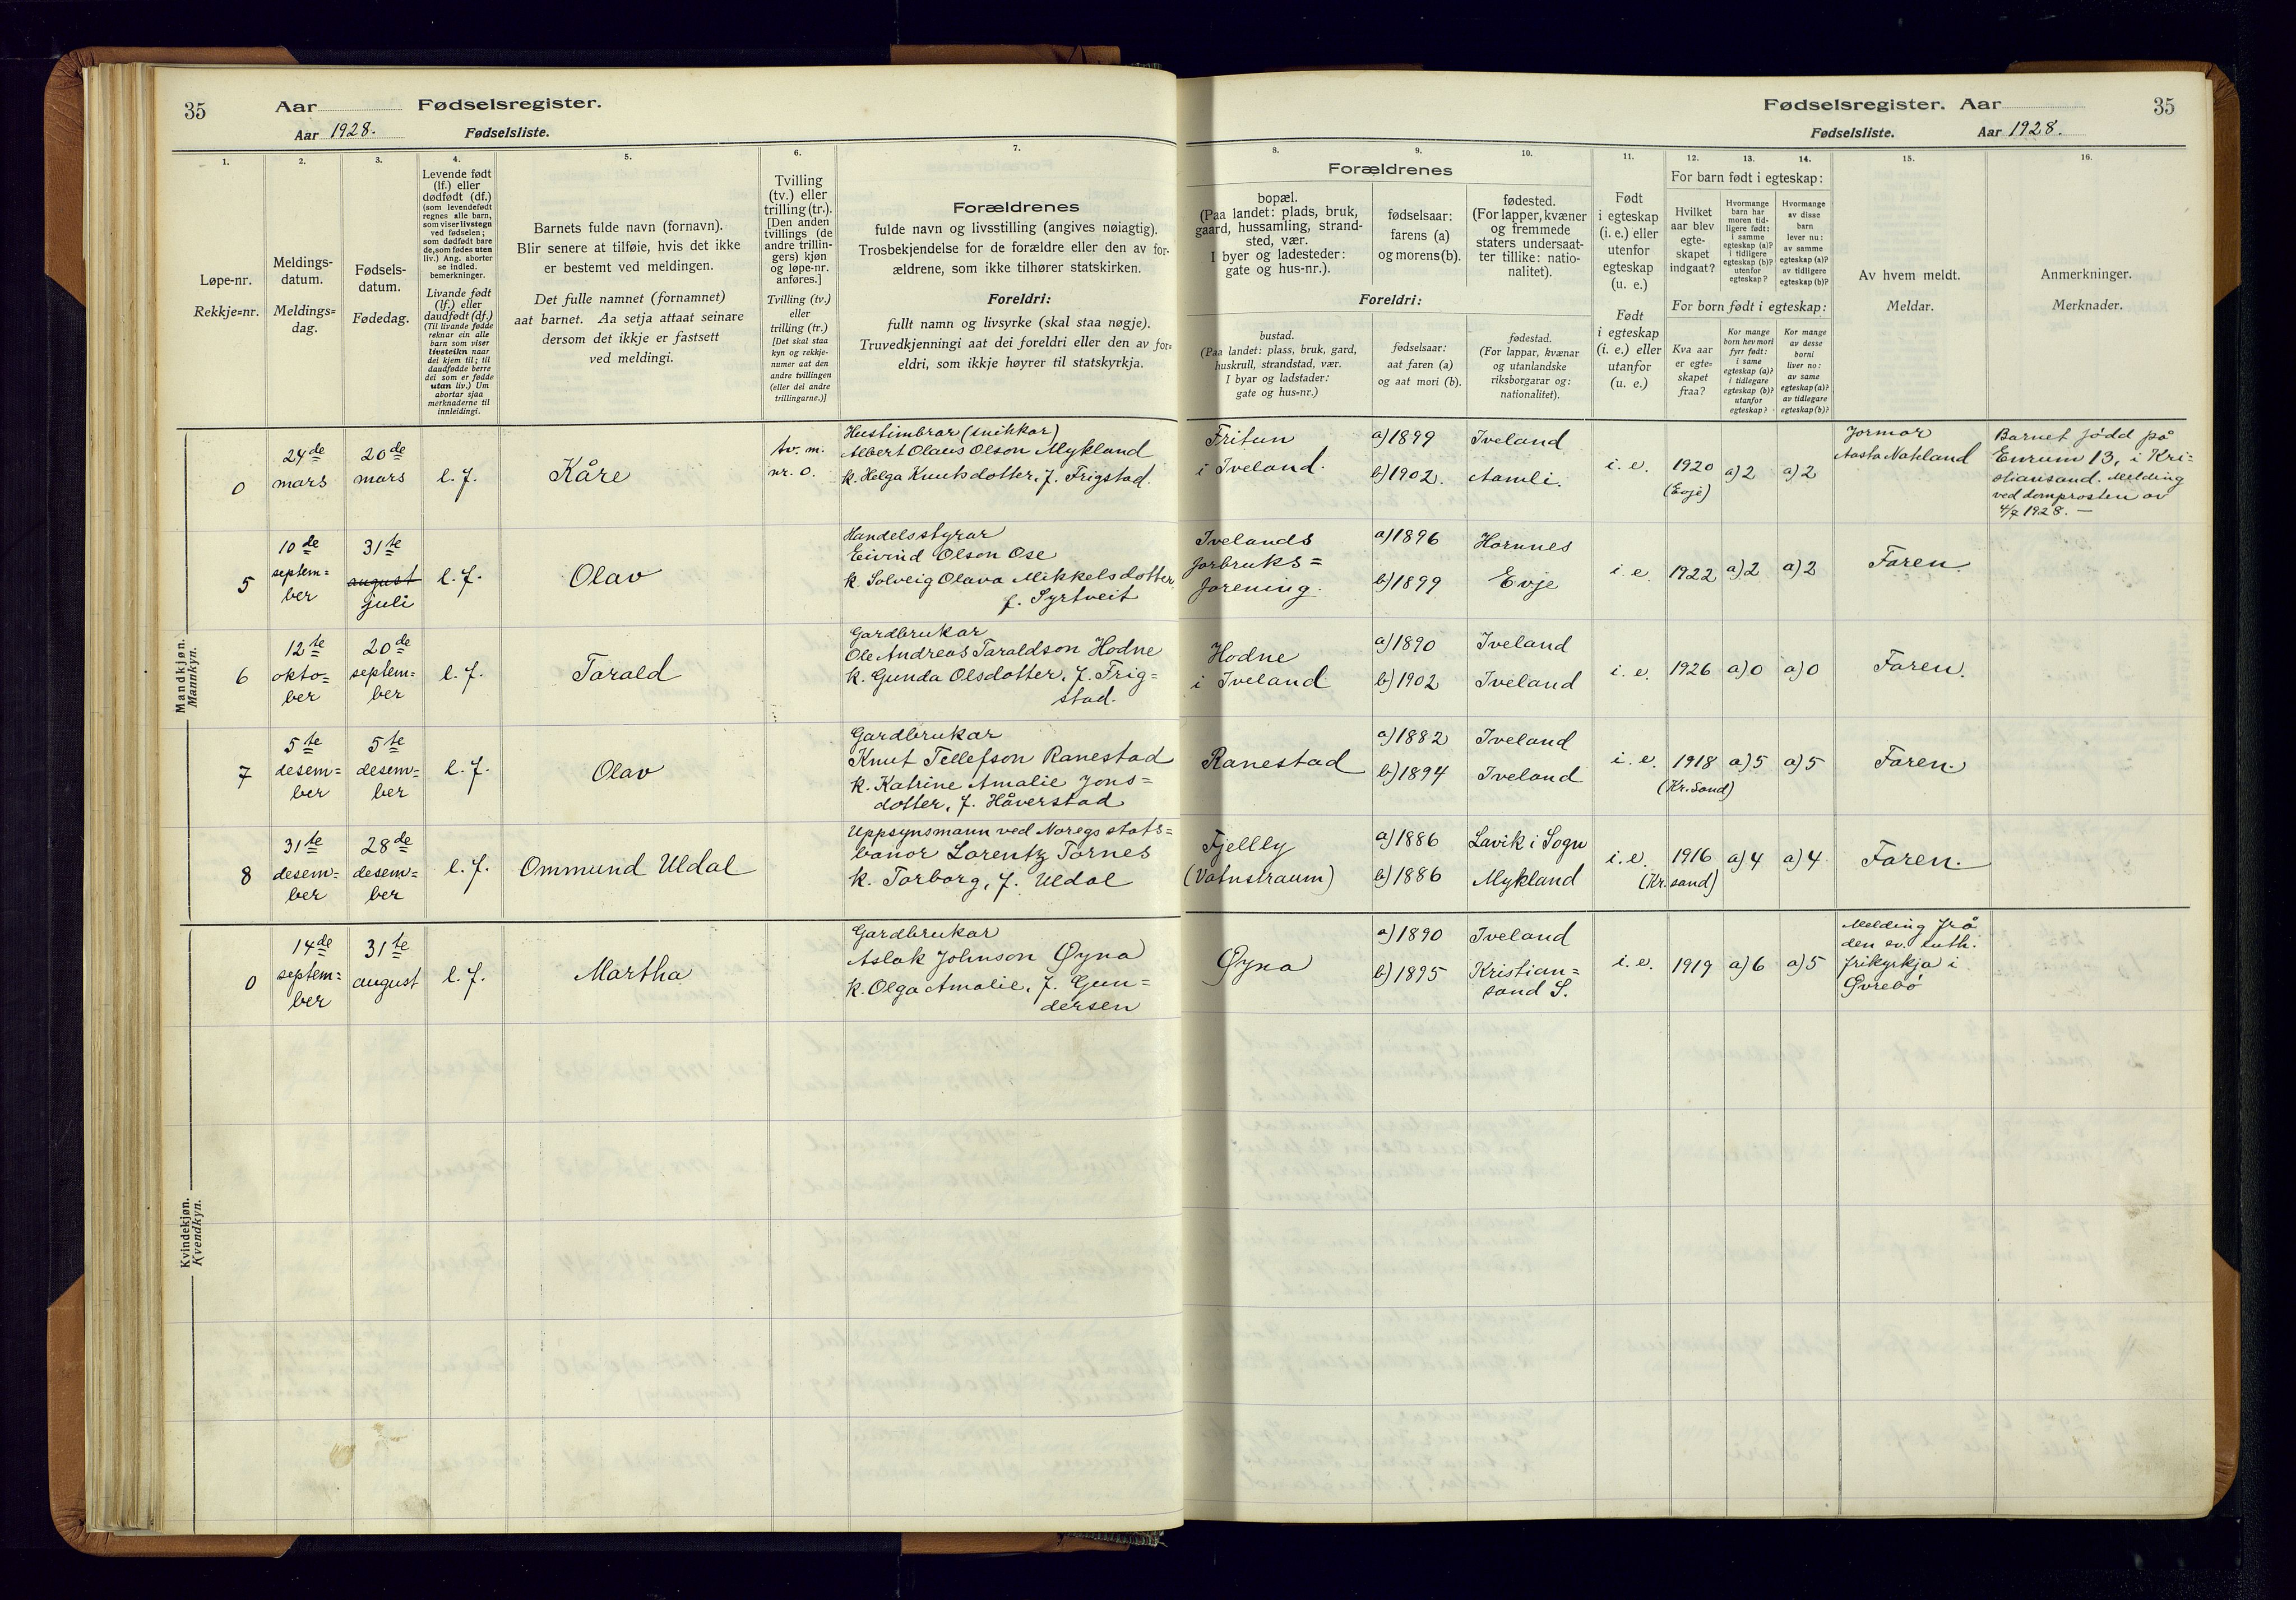 35
Aar
Fødselsregister.
Aar 1928.
Fødselsliste.
1.
Løpe-nr.
Rekkje=nr.
2.
Meldings-
datum.
Meldings=
dag.
3.
Fødsels-
datum.
Fødedag.
4.
Levende født
(lf.) eller
dødfødt (df.)
(som levendefødt
regnes alle barn,
som viser livstegn
ved fødselen;
som dødfødt bare
de, som fødes uten
liv.) Ang. aborter
se indled.
bemerkninger.
Livande født
(lf.) eller
daudfødt (df.)
(Til livande fødde
reknar ein alle
barn som viser
livsteikn naar
dei kjem til; til
daudfødde berre
dei som er fødde
utan liv.) Um
abortar sjaa
merknaderne til
innleidingi.
5.
Barnets fulde navn (fornavn).
Blir senere at tilføie, hvis det ikke
er bestemt ved meldingen.
Det fulle namnet (fornamnet)
aat barnet. Aa setja attaat seinare
dersom det ikkje er fastsett
ved meldingi.
6.
Tvilling
(tv.) eller
trilling (tr.).
[Den anden
tvillings (de
andre trillin-
gers) kjøn
og løpe-nr.
anføres.]
Tvilling (tv.)
eller
trilling (tr.)
[Det skal staa
kyn og rekkje-
numer aat den
andre tvillingen
(eller dei andre
trillingarne.)]
7.
Forældrenes
fulde navn og livsstilling (angives nøiagtig).
Trosbekjendelse for de forældre eller den av for-
ældrene, som ikke tilhører statskirken.
Foreldri:
fullt namn og livsyrke (skal staa nøgje).
Truvedkjenningi aat dei foreldri eller den av for=
eldri, som ikkje høyrer til statskyrkja.
Fødselsregister. Aar
35
Fødselsliste.
Aar 1928.
Forældrenes
8.
bopæl.
(Paa landet: plads, bruk,
gaard, hussamling, strand-
sted, vær.
I byer og ladesteder:
gate og hus-nr.).
9.
fødselsaar:
farens (a)
og morens (b).
10.
fødested.
(For lapper, kvæner
og fremmede
staters undersaat-
ter tillike: natio-
nalitet).
Foreldri:
bustad.
(Paa landet: plass, bruk, gard,
huskrull, strandstad, vær.
I byar og ladstader:
gate og hus=nr.)
fødselsaar:
aat faren (a)
og aat mori (b).
fødestad.
(For lappar, kvænar
og utanlandske
riksborgarar og:
nationalitet).
11.
Født
i egteskap
(i. e.) eller
utenfor
egteskap
(u. e.)
Født
i egteskap
(i. e.) eller
utanfor
(u. e.)
12.
13.
14.
For barn født i egteskap:
Hvilket
aar blev
egte-
skapet
indgaat?
Hvormange
barn har
moren tid-
ligere født:
i samme
egteskap (a)?
i tidligere
egteskap (b)?
utenfor
egteskap?
Hvormange
av disse
barn
lever nu:
av samme
egteskap (a)?
av tidligere
egteskap (b)?
For born født i egteskap:
Kva aar
er egte=
skapet
fraa?
Kor mange
born hev mori
fyrr født:
i same
egteskap (a)?
i tidlegare
egteskap (b)?
utanfor
egteskap?
Kor mange
av desse
borni
liver no:
av same
egteskap (a)?
av tidlegare
egteskap (b)?
15.
Av hvem meldt.
Meldar.
16.
Anmerkninger.
Merknader.
Mandkjøn.
Mannkyn.
0
24de
mars
20de
mars
l. f.
Kåre
tv. m.
nr. 0.
Hustimbrar (snikkar)
Albert Olaus Olson Mykland
k. Helga Knutsdotter, f. Frigstad.
Fritun
i Iveland.
a) 1899
b) 1902.
Iveland
Aamli.
i. e.
1920
(Evje)
a) 2
a) 2
Jormor
Aasta Nateland
Barnet født på
Enrum 13, i Kri=
stiansand. Melding
ved domprosten av
4/7 1928. —
5
10de
septem=
ber
31te
august
juli
l. f.
Olav
Handelsstyrar
Eivind Olson Ose
k. Solveig Olava Mikkelsdotter
f. Syrtveit
Ivelands
forbruks=
forening.
a) 1896
b) 1899
Hornnes
Evje
i. e.
1922
a) 2
a) 2
Faren
6
12te
okto=
ber
20de
septem=
ber
l. f.
Tarald
Gardbrukar
Ole Andreas Taraldson Hodne
k. Gunda Olsdotter, f. Frig=
stad.
Hodne
i Iveland
a) 1890
b) 1902
Iveland
Iveland
i. e.
1926
a) 0
a) 0
Faren.
7
5te
desem=
ber
5te
desem=
ber
l. f.
Olav
Gardbrukar
Knut Tellefson Ranestad
k. Katrine Amalie Jons=
dotter, f. Håverstad
Ranestad
a) 1882
b) 1894
Iveland
Iveland
i. e.
1918
(Kr.sand)
a) 5
a) 5
Faren.
8
31te
desem=
ber
28de
desem=
ber
l. f.
Ommund Uldal
Uppsynsmann ved Noregs stats=
banor Lorentz Tornes
k. Torborg, f. Uldal
Fjelly
(Vatnstraum)
a) 1886
b) 1886
Lavik i Sogn
Mykland
i. e.
1916
(Kr.sand)
a) 4
a) 4
Faren.
Kvindekjøn.
Kvendkyn.
0
14de
septem=
ber
31te
august
l. f.
Martha
Gardbrukar
Aslak Johnson Øyna
k. Olga Amalie, f. Gun=
dersen
Øyna
a) 1890
b) 1895
Iveland
Kristian=
sand S.
i. e.
1919
a) 6
a) 5
Melding frå
den ev. luth.
frikyrkja i
Øvrebø